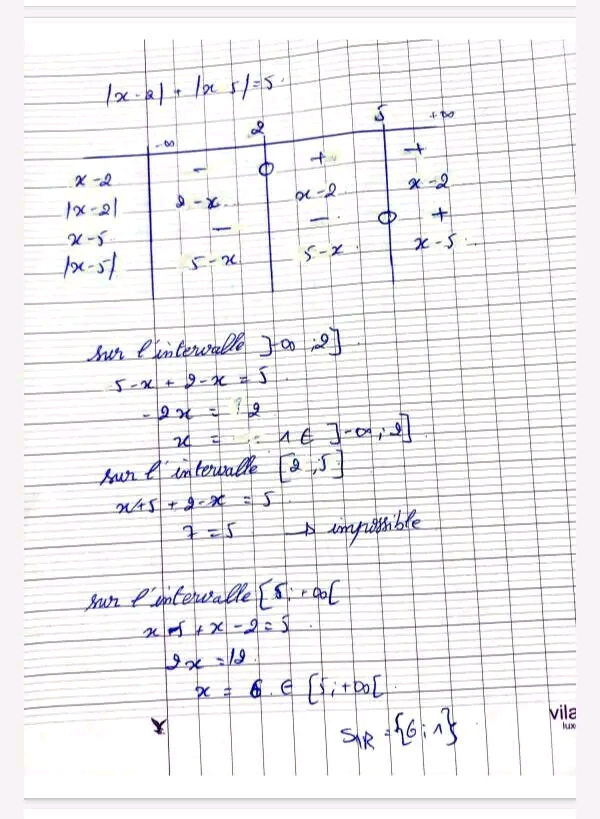 |x-2| + |x 5|=5.
2 5 +∞
-∞
x-2 - + +
|x-2| 2-x x-2 x-2
x-5 - - +
|x-5| 5-x 5-x x-5
sur l'intervalle ]-∞ ; 2]
5-x + 2-x = 5
-2x = 2
x = 1 ∈ ]-∞ ; 2]
sur l'intervalle [2 ; 5]
x+5 + 2-x = 5
7 = 5 → impossible
sur l'intervalle [5 ; +∞[
x-5 + x-2 = 5
2x = 12
x = 6 ∈ [5 ; +∞[
S_IR = {6 ; 1}
vila
lux